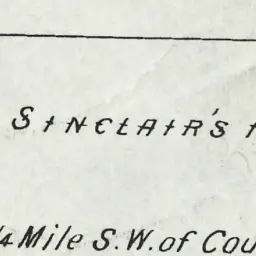 SINCLAIR'S
1/4 Mile S.W. of Cou